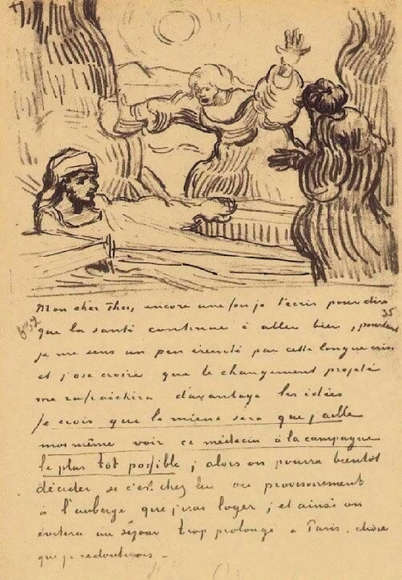 Mon cher Theo, encore une fois je t'écris pour dire
que la santé continue à aller bien, pourtant
je me sens un peu éreinté par cette longue crise
et j'ose croire que le changement projeté
me rafraichira davantage les idées
Je crois que le mieux sera que j'aille
moi même voir ce médecin à la campagne
le plus tot possible; alors on pourra bientôt
décider si c'est chez lui ou provisoirement
à l'auberge que j'irai loger; et ainsi on
évitera un séjour trop prolongé à Paris, chose
que je redouterais.